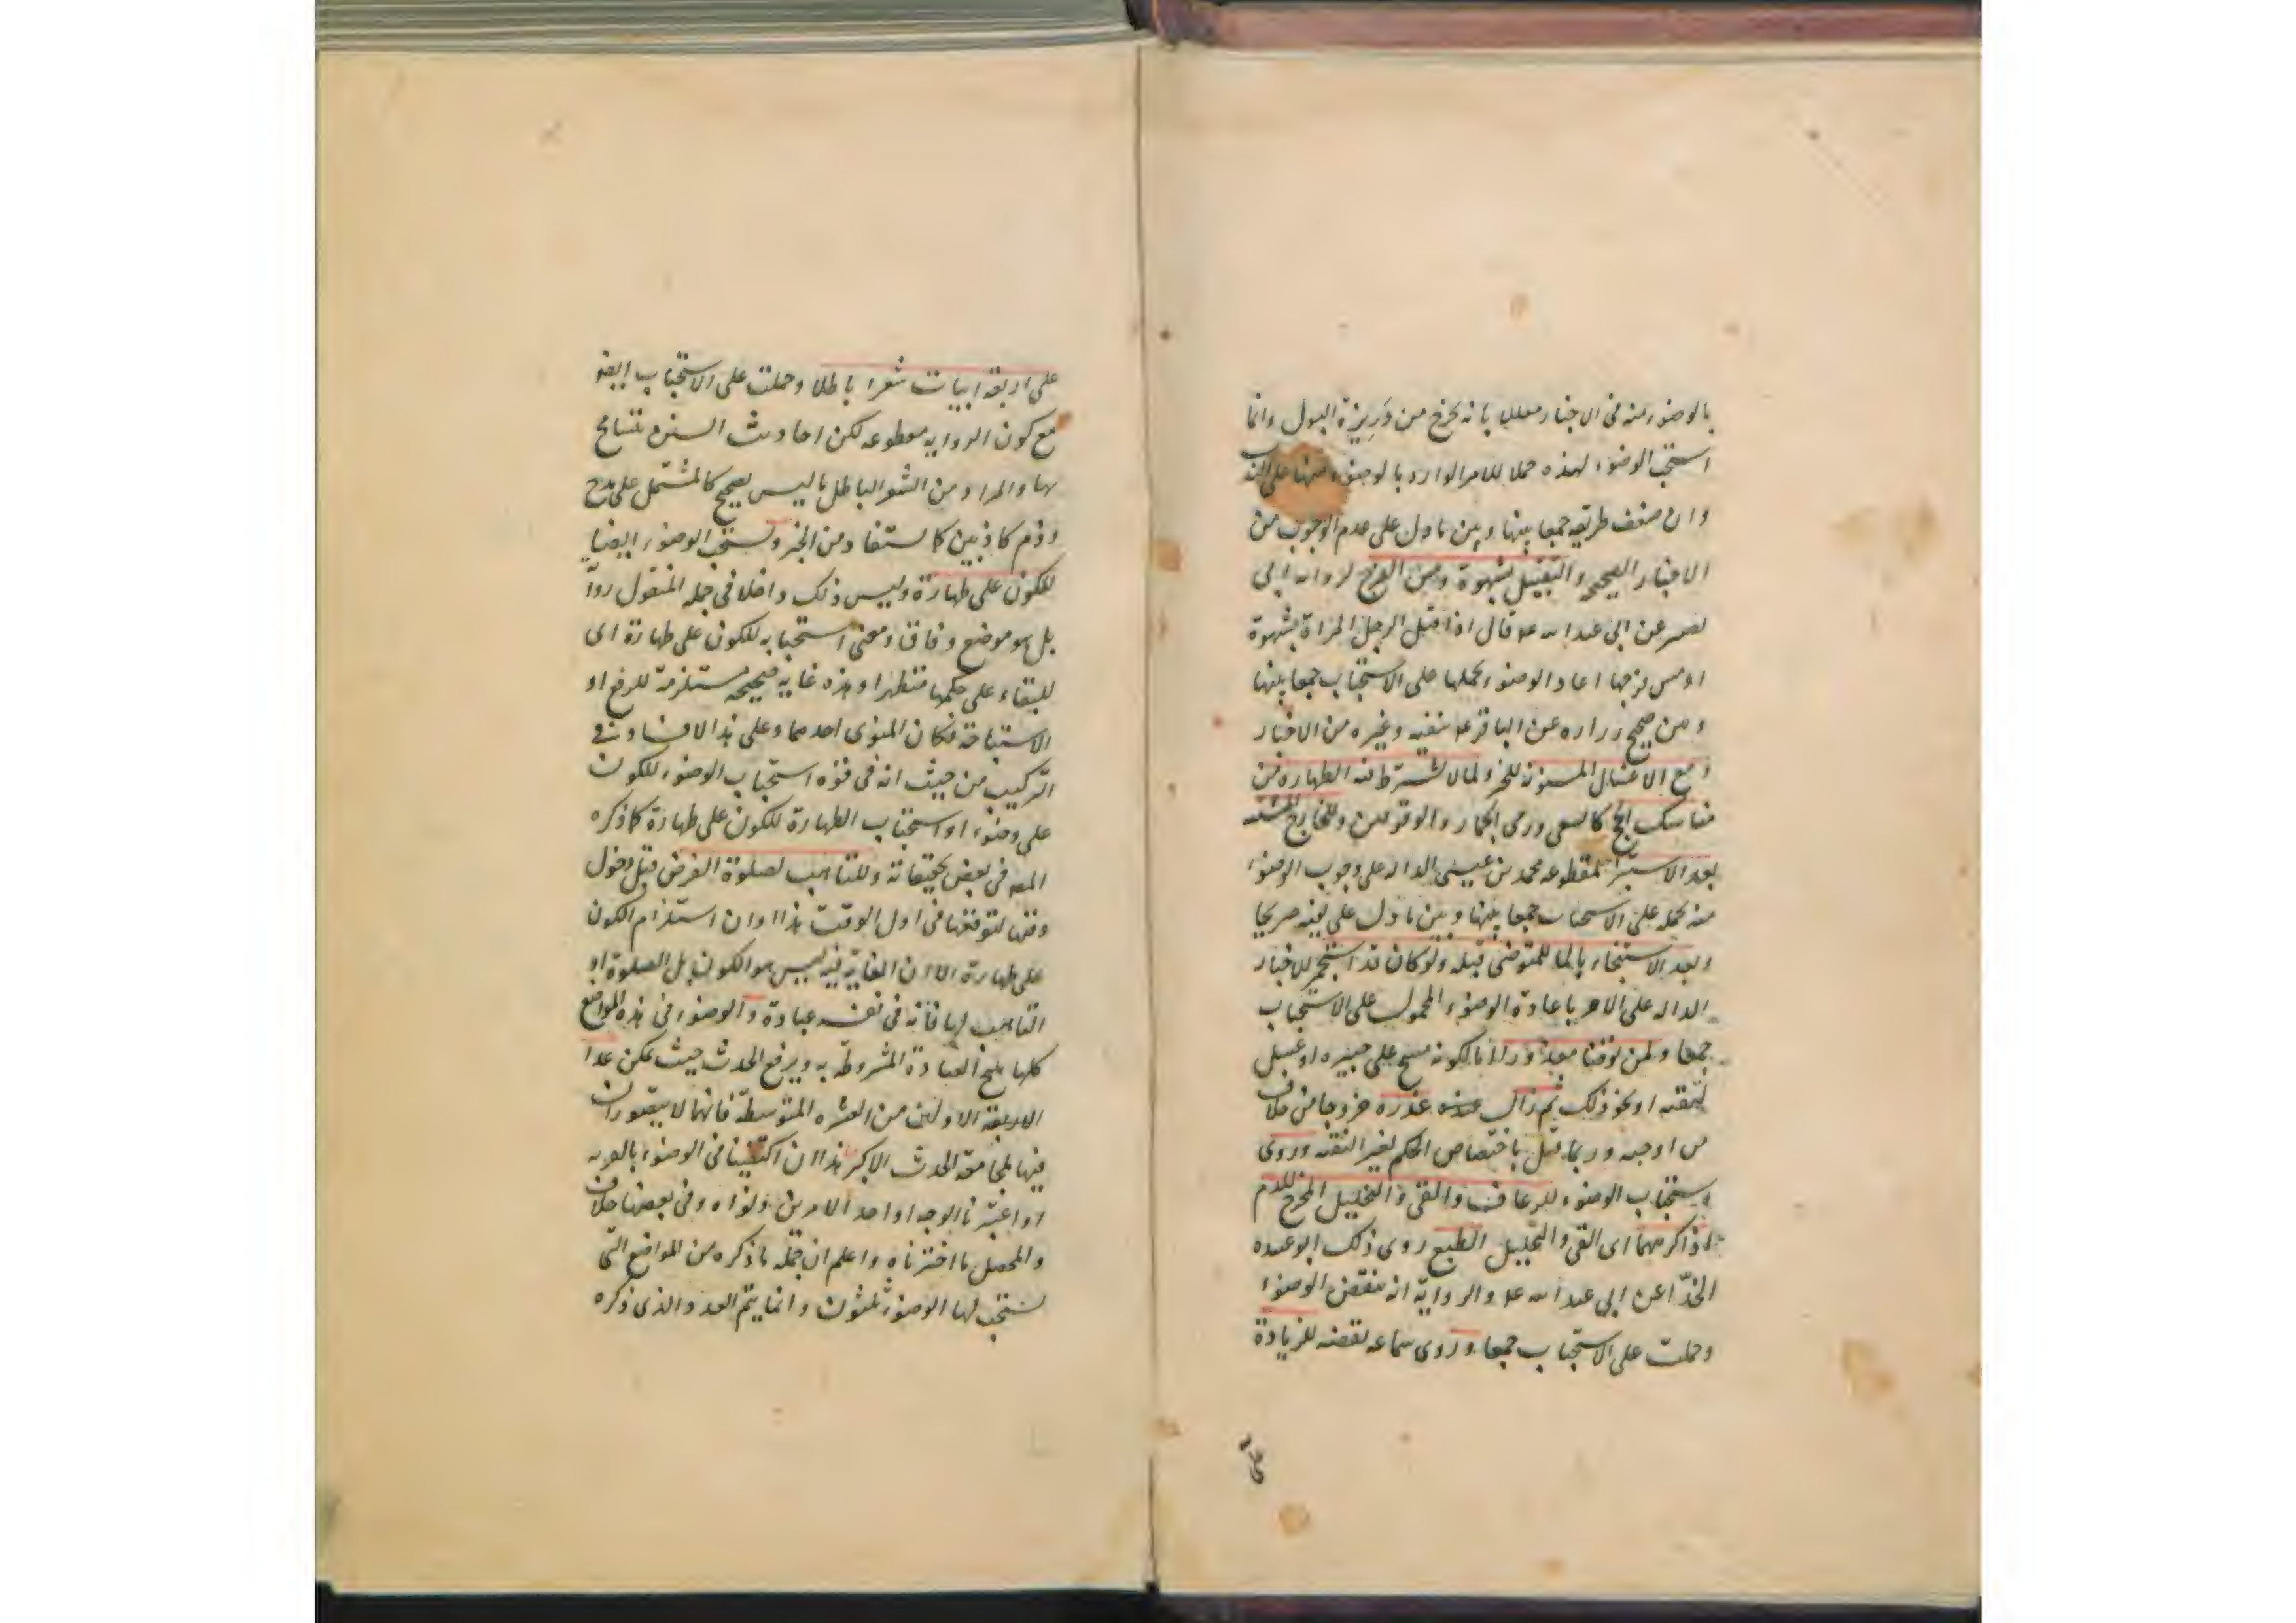 بالوضوء منه في الاخبار معللا بانه يخرج من دريرة البول وانما
استحب الوضوء لهذه حملا للامر الوارد بالوضوء منها على الندب
وان ضعف طريقه جمعا بينها وبين ما دل على عدم الوجوب من
الاخبار الصحيحه والتقبيل بشهوة ومس الفرج لرواية ابي
بصير عن ابي عبد الله ع قال اذا قبل الرجل المراة بشهوة
او مس فرجها اعاد الوضوء بحملها على الاستحباب جمعا بينها
وبين صحيح زراره عن الباقر ع بنفيه وغيره من الاخبار
ومع الاغسال المسنونه للخبر ولما لا يشترط فيه الطهارة من
مناسك الحج كالسعي ورمي الجمار والوقوفين وللخارج المشتبه
بعد الاستبراء لمقطوعه محمد بن عيسى الداله على وجوب الوضوء
منه بحمله على الاستحباب جمعا بينها وبين ما دل على نفيه صريحا
وبعد الاستنجاء بالماء للمتوضي قبله ولو كان قد استجمر للاخبار
الداله على الامر باعادة الوضوء المحمول على الاستحباب
جمعا ولمن توضأ معذورا بالكونه مسح على جبيره او غسل
لتقيه او نحو ذلك ثم زال عذره خروجا من خلاف
من اوجبه وربما قيل باختصاص الحكم بغير التقيه وروي
استحباب الوضوء للرعاف والقي والتخليل المخرج للدم
اذا كرههما اى القي والتخليل الطبع روى ذلك ابو عبيده
الحذّا عن ابي عبد الله ع والرواية انه ينقض الوضوء
وحملت على الاستحباب جمعا وروى سماعه نقضه للزيادة
على
على اربعة ابيات شعرا باطلا وحملت على الاستحباب ايضا
مع كون الرواية مقطوعه لكن احاديث السنن يتسامح
بها والمراد من الشعر الباطل ما ليس بصحيح كالمشتمل على مدح
وذم كاذبين كما يستفاد من الخبر ويستحب الوضوء ايضا
للكون على طهارة وليس ذلك داخلا في جمله المنقول روايةً
بل هو موضع وفاق ومعنى استحبابه للكون على طهارة اى
للبقاء على حكمها متطهرا وهذه غاية صحيحه مستلزمة للرفع او
الاستباحة فكان المنوى احدهما وعلى هذا لا فساد في
التركيب من حيث انه في قوة استحباب الوضوء للكون
على وضوء او استحباب الطهارة للكون على طهارة كما ذكره
المص في بعض تحقيقاته وللتاهب لصلوة الفرض قبل دخول
وقتها لتوقعها في اول الوقت هذا وان استلزم الكون
على طهارة الا ان الغاية فيه ليس هو الكون بل الصلوة او
التاهب لها فانه في نفسه عبادة والوضوء في هذه المواضع
كلها يبيح العبادة المشروطة به ويرفع الحدث حيث يمكن عدا
الاربعة الاولين من العشره المتوسطة فانهما لا يتصوران
فيها لمجامعة الحدث الاكبر هذا ان اكتفينا في الوضوء بالقربه
او اعتبرنا الوجه او احد الامرين ونواه وفي بعضها خلاف
والمحصل ما اخترناه واعلم ان جمله ما ذكره من المواضع التي
يستحب لها الوضوء ثلثون وانما يتم العدد الذى ذكره